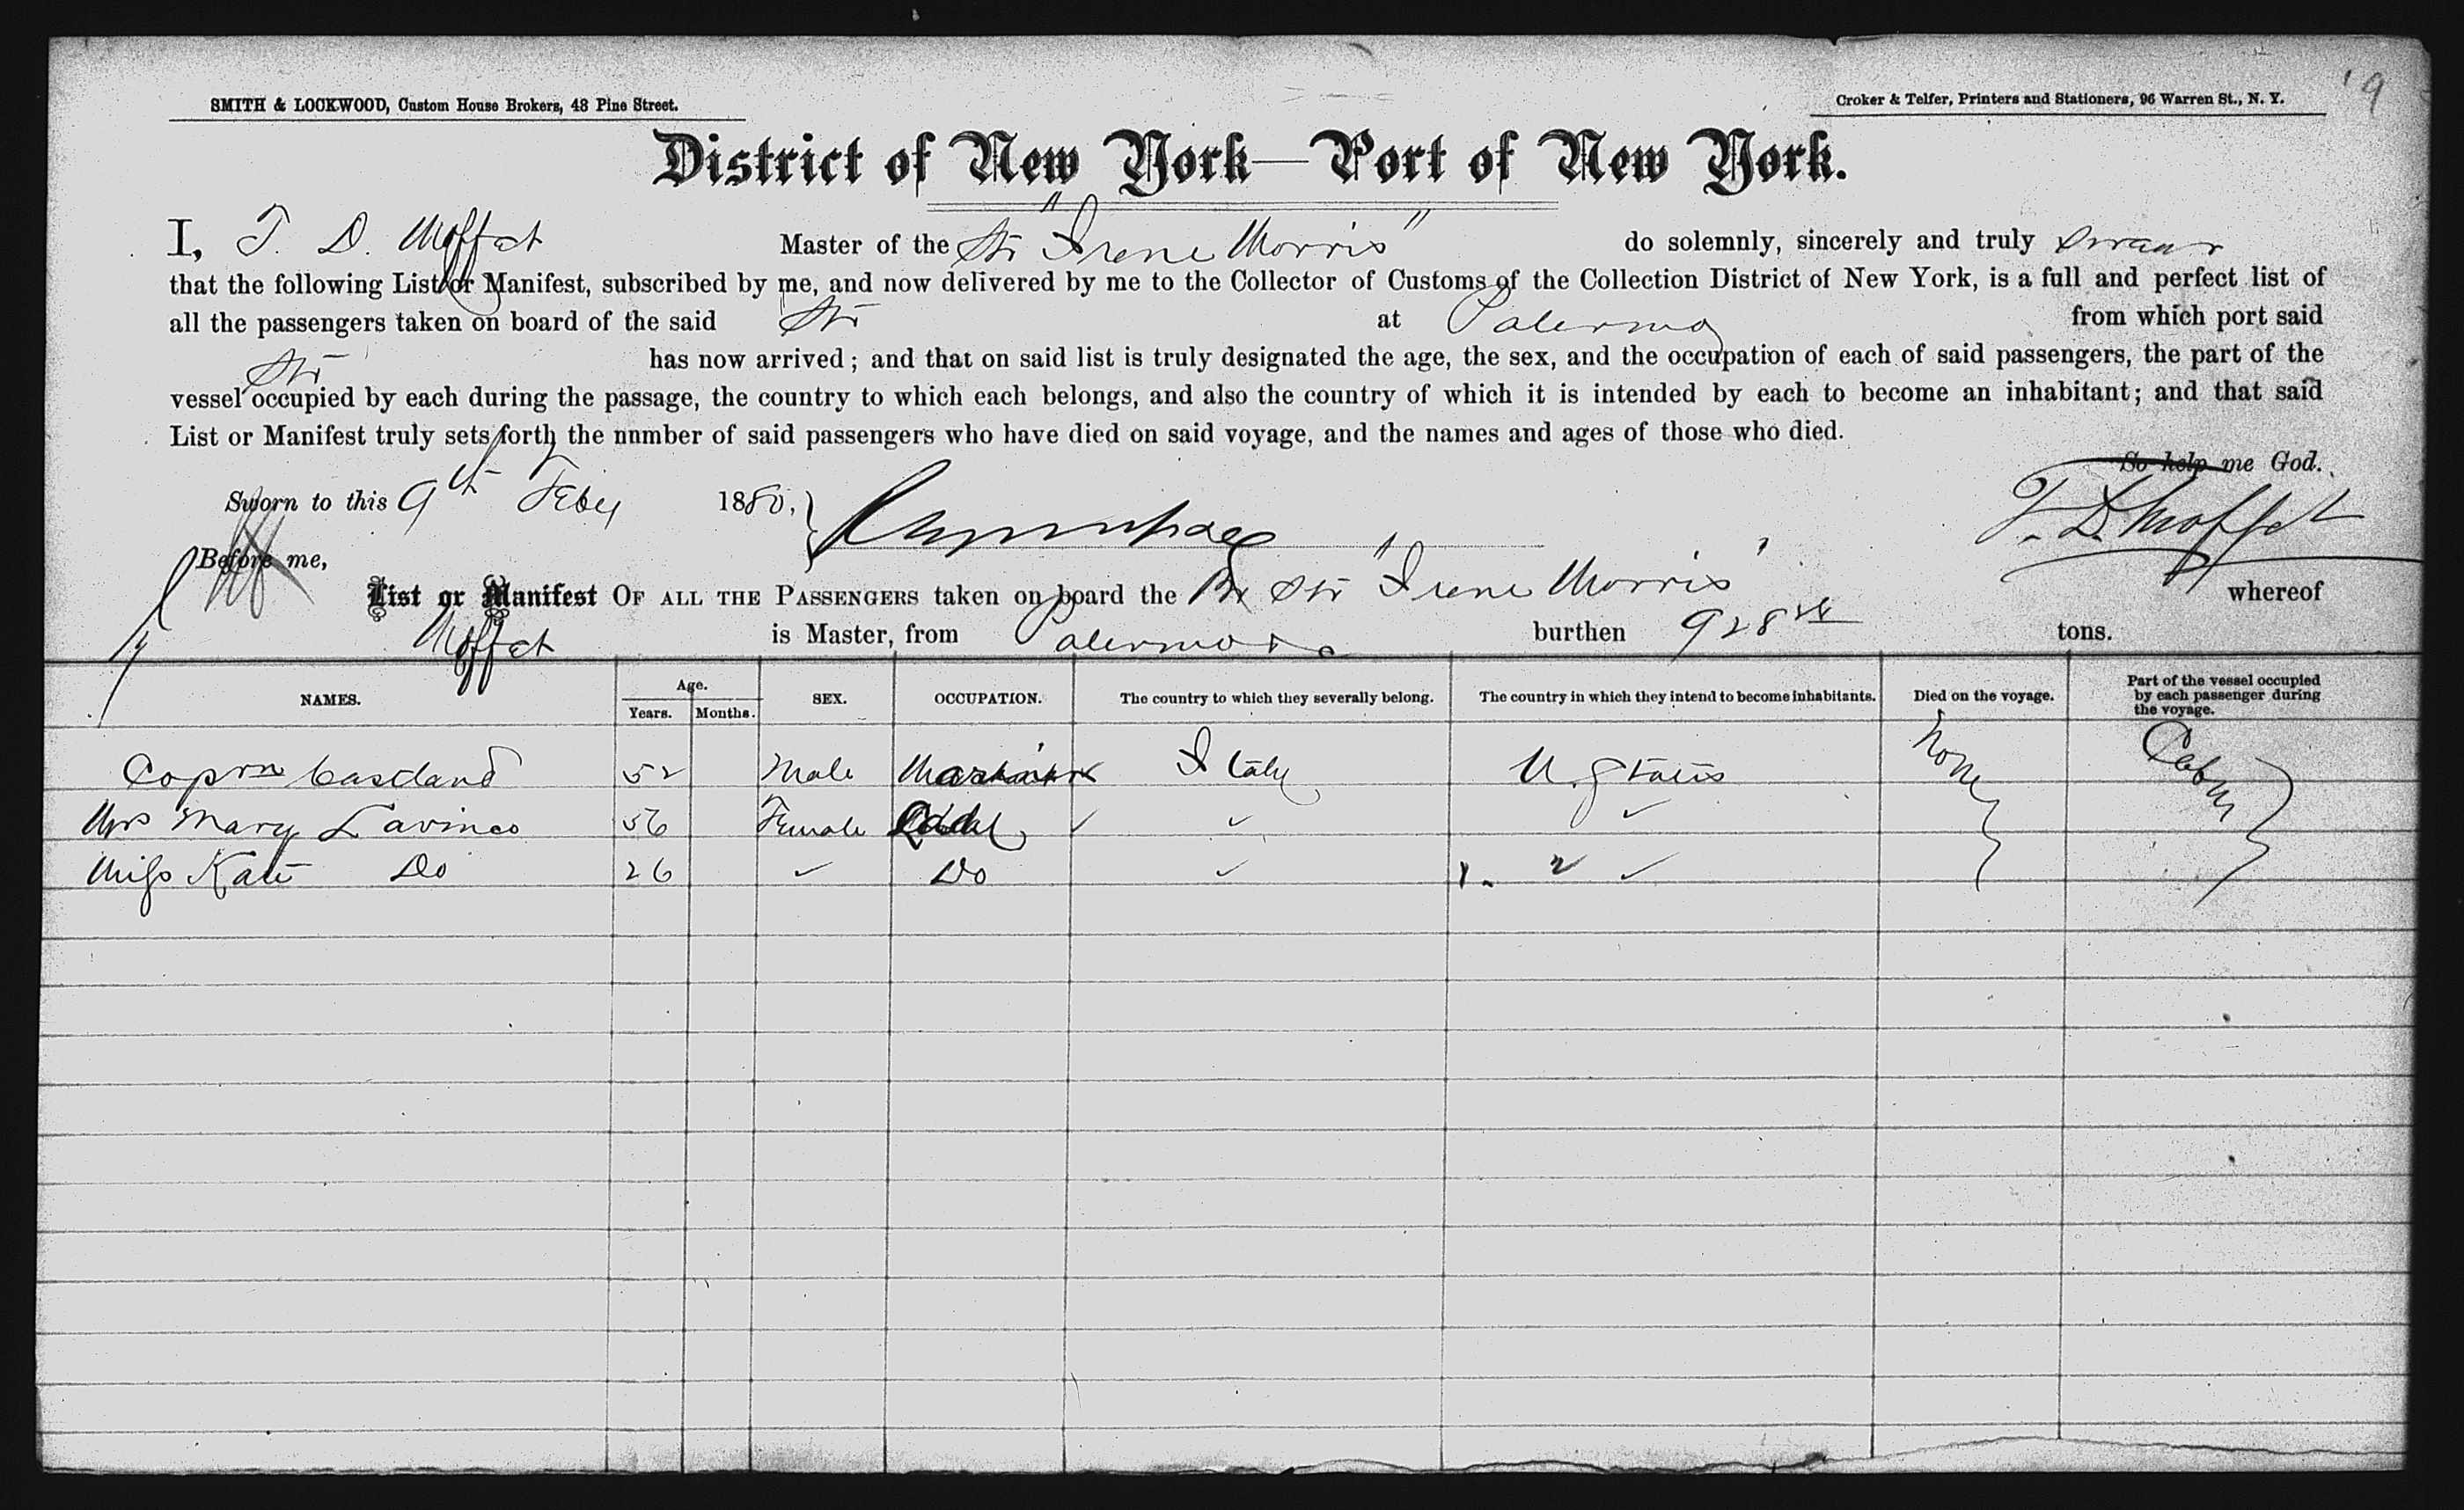 '9
SMITH & LOCKWOOD, Custom House Brokers, 48 Pine Street.
Croker & Telfer, Printers and Stationers, 96 Warren St., N. Y.
District of New York—Port of New York.
I, T. D. Moffat Master of the Str "Irene Morris" do solemnly, sincerely and truly swear
that the following List or Manifest, subscribed by me, and now delivered by me to the Collector of Customs of the Collection District of New York, is a full and perfect list of
all the passengers taken on board of the said Str at Palermo from which port said
Str has now arrived; and that on said list is truly designated the age, the sex, and the occupation of each of said passengers, the part of the
vessel occupied by each during the passage, the country to which each belongs, and also the country of which it is intended by each to become an inhabitant; and that said
List or Manifest truly sets forth the number of said passengers who have died on said voyage, and the names and ages of those who died.
So help me God.
Sworn to this 9th Feby 1880,
T. D. Moffat
Before me,
List or Manifest OF ALL THE PASSENGERS taken on board the Br Str "Irene Morris" whereof
Moffat is Master, from Palermo burthen 928 tons.
NAMES. Age. Years. Months. SEX. OCCUPATION. The country to which they severally belong. The country in which they intend to become inhabitants. Died on the voyage. Part of the vessel occupied by each passenger during the voyage.
52 Male Italy U. States None Cabin
Mrs Mary 56 Female ✓ ✓ ✓
Miss Kate Do 26 ✓ Do ✓ ✓